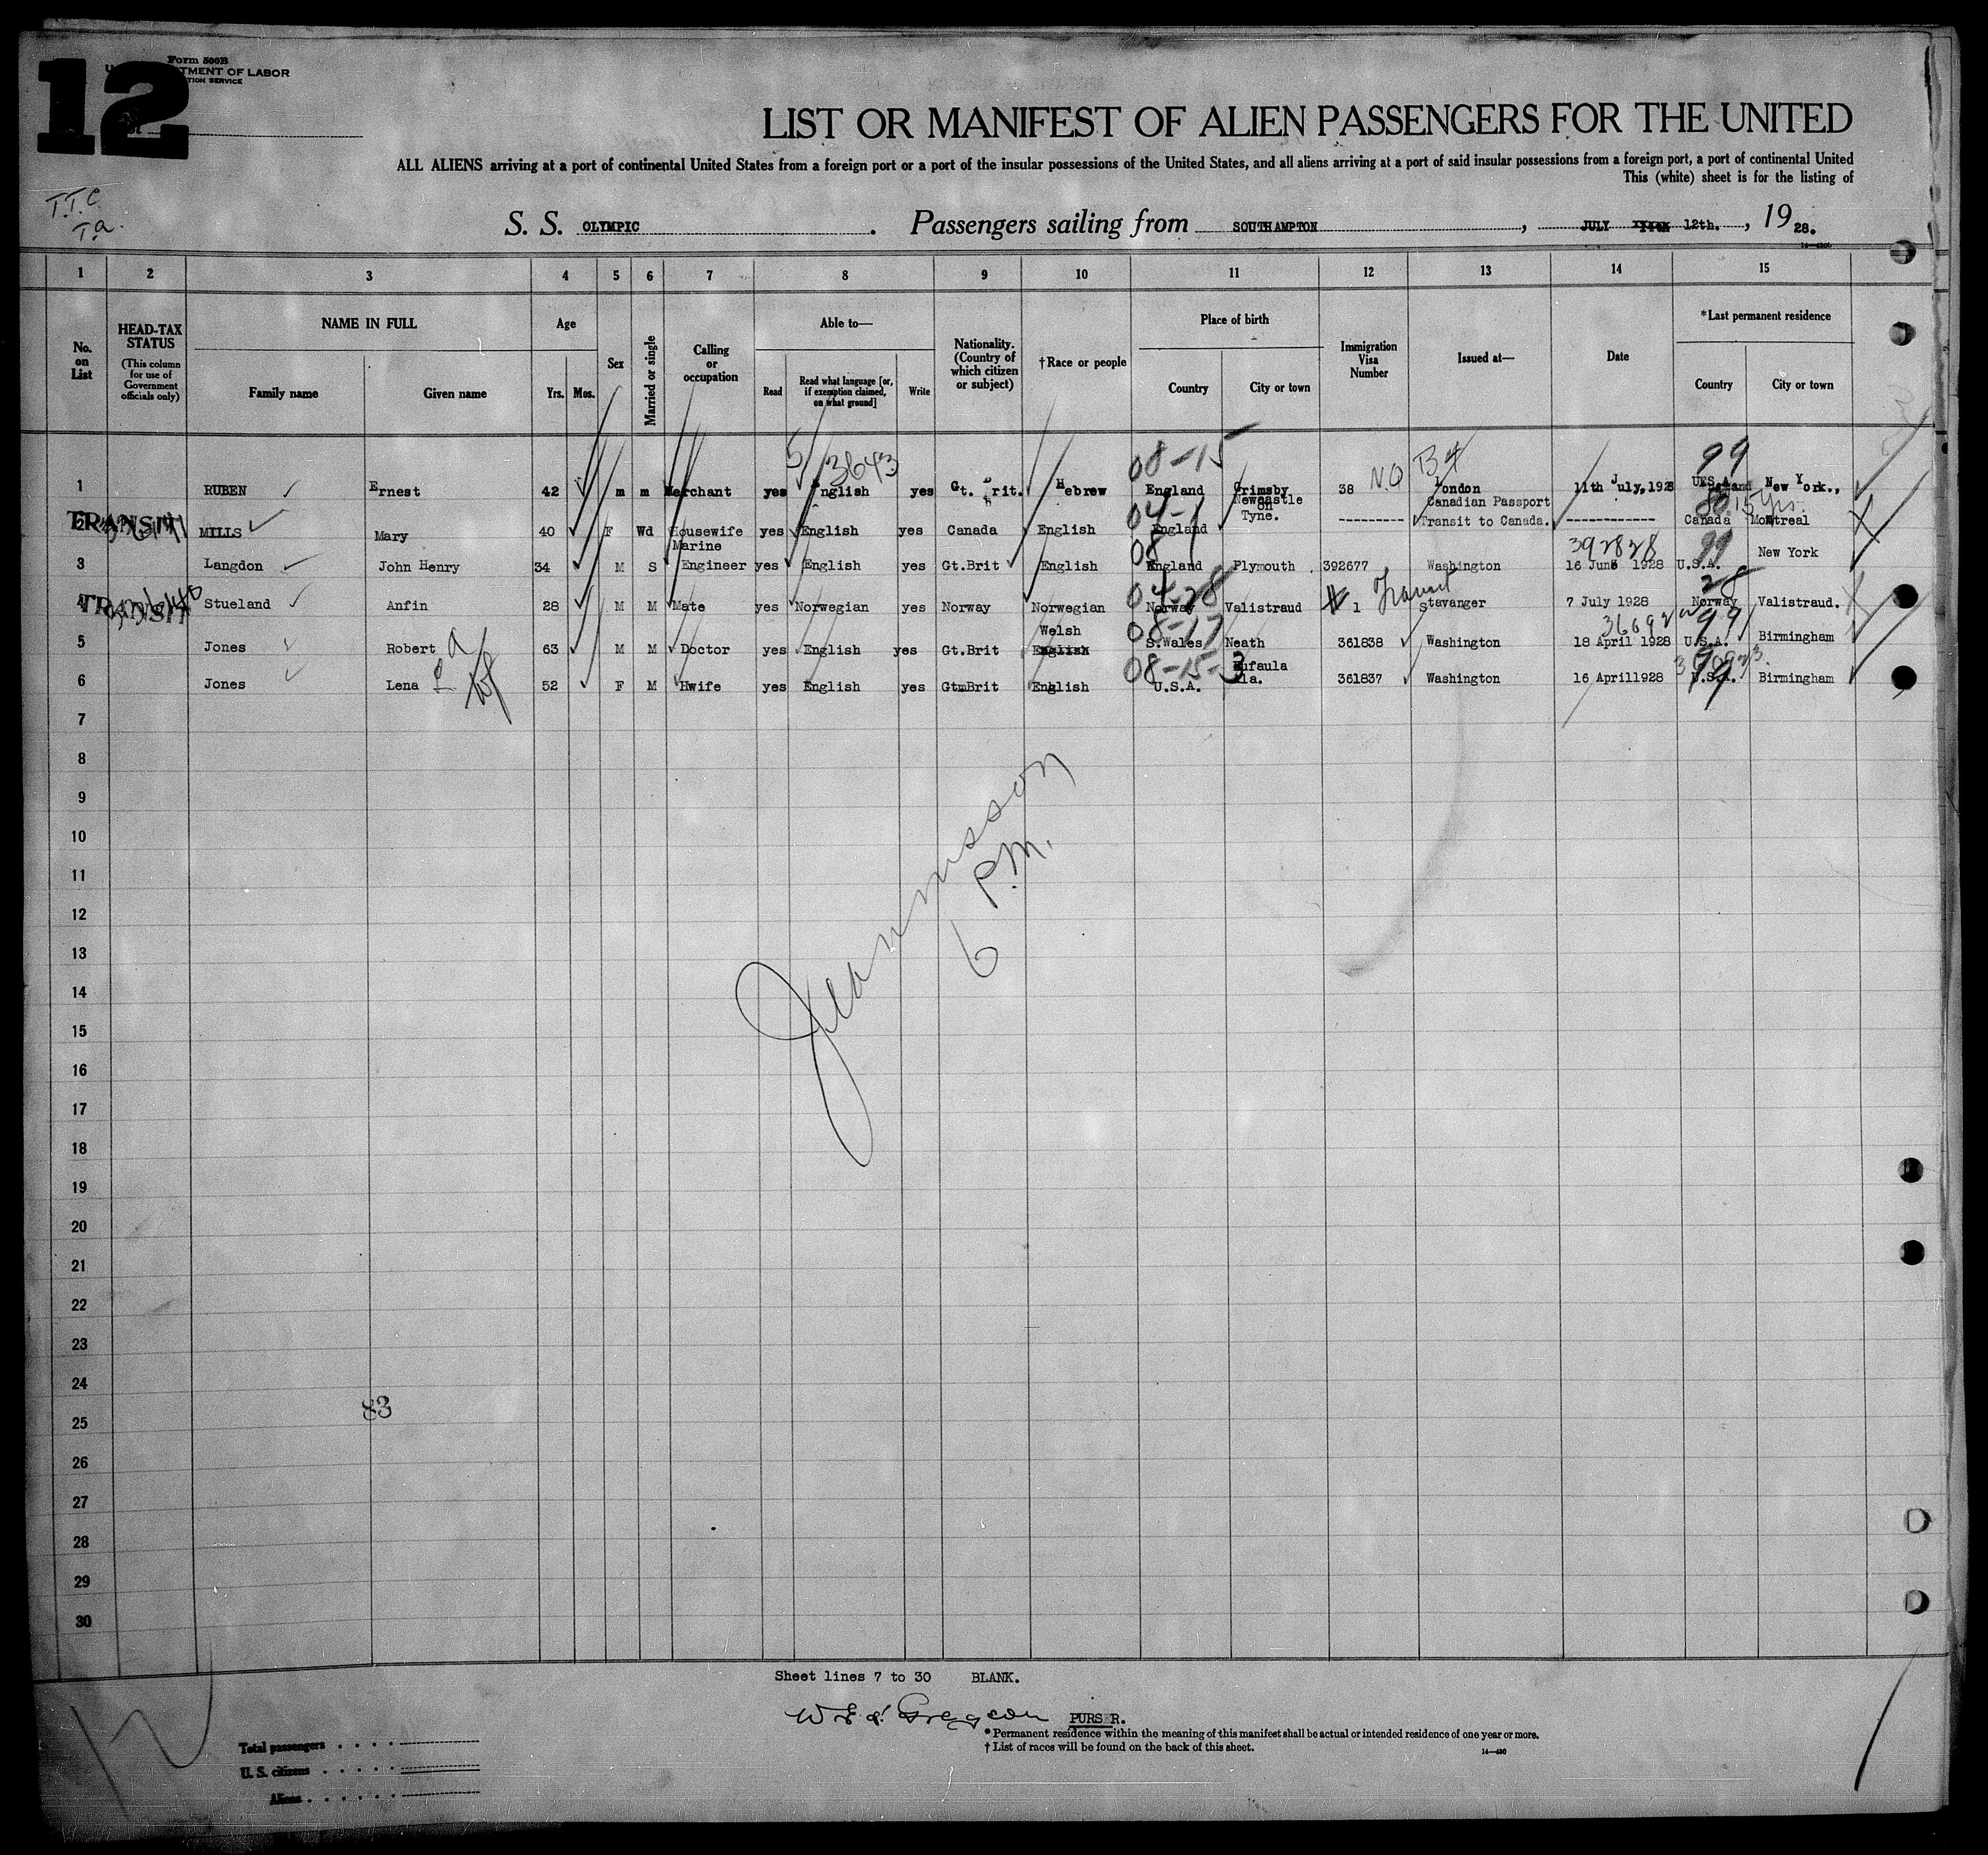 12
Form 500B
TMENT OF LABOR
TION SERVICE
LIST OR MANIFEST OF ALIEN PASSENGERS FOR THE UNITED
ALL ALIENS arriving at a port of continental United States from a foreign port or a port of the insular possessions of the United States, and all aliens arriving at a port of said insular possessions from a foreign port, a port of continental United
This (white) sheet is for the listing of
T.T.C.
T.a.
S. S. OLYMPIC . Passengers sailing from SOUTHAMPTON , JULY 12th. , 19 28.
1 2 3 4 5 6 7 8 9 10 11 12 13 14 15
No. on List
HEAD-TAX STATUS (This column for use of Government officials only)
NAME IN FULL
Family name Given name
Age
Yrs. Mos.
Sex
Married or single
Calling or occupation
Able to—
Read Read what language [or, if exemption claimed, on what ground] Write
Nationality. (Country of which citizen or subject)
†Race or people
Place of birth
Country City or town
Immigration Visa Number
Issued at—
Date
*Last permanent residence
Country City or town
5 3643 08-15 N.Q B4 99
1 RUBEN Ernest 42 m m Merchant yes English yes Gt. Brit. Hebrew England Grimsby 38 London 11th July, 1928 U.S.A. New York.,
TRANSIT 04-1 15 yrs.
2 MILLS Mary 40 F Wd Housewife yes English yes Canada English England Newcastle on Tyne. --------- Canadian Passport Transit to Canada. ------------ Canada Montreal
08 392828 99
3 Langdon John Henry 34 M S Marine Engineer yes English yes Gt.Brit English England Plymouth 392677 Washington 16 June 1928 U.S.A. New York
TRANSIT 04-28 Transit 28
4 Stueland Anfin 28 M M Mate yes Norwegian yes Norway Norwegian Norway Valistraud 1 Stavanger 7 July 1928 Norway Valistraud.
08-17 99
5 Jones Robert A 63 M M Doctor yes English yes Gt.Brit Welsh English S.Wales Neath 361838 Washington 18 April 1928 U.S.A. Birmingham
08-15-3 99
6 Jones Lena 52 F M Hwife yes English yes GtmBrit English U.S.A. Eufaula Ala. 361837 Washington 16 April1928 U.S.A. Birmingham
7
8
9
10
11
12
13
14
15
16
17
18
19
20
21
22
23
24
25
26
27
28
29
30
6 P.M.
83
Sheet lines 7 to 30 BLANK.
PURSER.
*Permanent residence within the meaning of this manifest shall be actual or intended residence of one year or more.
†List of races will be found on the back of this sheet.
14—430
Total passengers
U. S. citizens
Aliens